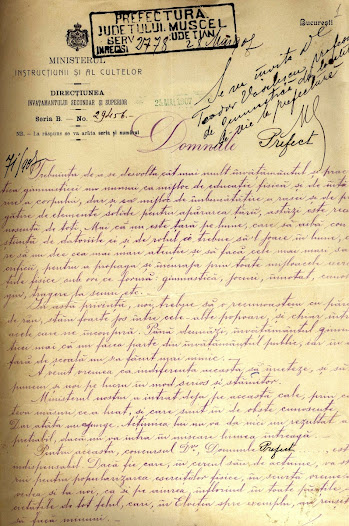 PREFECTURA
JUDETULUI MUSCEL
SERV JUDETIAN
INREGIST 2778 2
București
MINISTERUL
INSTRUCȚIUNEI ȘI AL CULTELOR
DIRECȚIUNEA
ÎNVĂȚĂMÂNTULUI SECUNDAR ȘI SUPERIOR
Seria B. — No. 29456.
NB. — La răspuns se va arăta seria și numărul
Se va invita Dl
Teodor
de
prefectură
Domnule
Prefect
de a se desvolta cât mai mult învățământul și prac
gimnasticei nu numai ca mijloc de educație fizică și de întă
a corpului, dar și ca mijloc de îmbunătățire a rasei și de pre
gătire de elemente solide pentru apărarea țării, astăzi este recu
noscută de toți. Mai că nu este țară pe lume, care să aibă con
știință de datoriile ei și de rolul ce trebue să'l joace în lume, ca
să nu dee cea mai mare atenție și să facă cele mai mari sa
crificii, pentru a propaga și încuraja prin toate mijloacele exerci
țiile fizice sub ori ce formă: gimnastică, jocuri, înnotul, cano
tagiu, tragere la semn etc.
În astă privință, noi trebue să o recunoaștem cu păre
re de rău, stăm foarte jos între cele alte popoare, și chiar într
cele care ne înconjură. Până deunăzi învățământul gimna
sticei mai că nu făcea parte din învățământul public, iar în a
fară de școală nu s'a făcut mai nimic.
A venit vremea ca indiferența aceasta să înceteze, și să
punem și noi pe lucru în mod serios și stăruitor.
Ministerul nostru a intrat deja pe această cale, prin ca
teva măsuri ce a luat, și care sunt în de obște cunoscute.
Dar atâta nu ajunge. Acțiunea lui nu va da mei un rezultat a
preciabil, dacă nu va intra în mișcare lumea întreagă.
Pentru aceasta, concursul Dv. Domnule Prefect, est
indispensabil. Dacă fie care, în cercul său de acțiune, va st
rui pentru popularizarea exercițiilor fizice, în scurtă vreme
vedea, și la noi, ca și pe aiurea, înflorind în toate părțile
societăți de tot felul, care, în Elveția spre exemplu, nu lasă